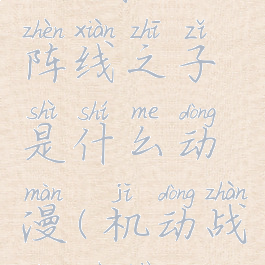 zhèn xiàn zhī zǐ
阵线之子
shì shí me dòng
是什么动
màn jī dòng zhàn
漫(机动战